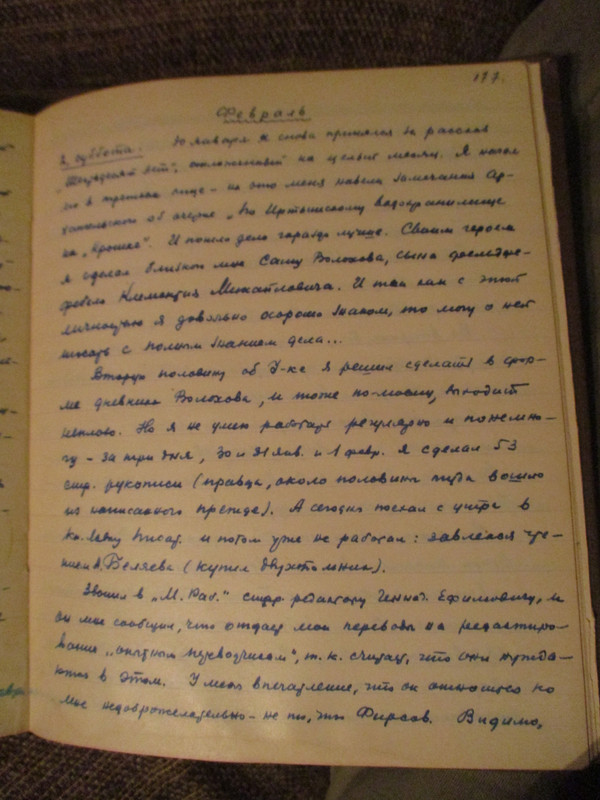 117.
Февраль
2, суббота. 30 января я снова принялся за рассказ
отложенный на целый месяц. Я начал
его в третьем лице – на это меня навели замечания Ар-
хангельского об очерке „По Иртышскому водохранилищу
на „Крошке". И пошло дело гораздо лучше. Своим героем
я сделал близкого мне Сашу Волохова, сына
Климентия Михайловича. И так как с этой
личностью я довольно хорошо знаком, то могу о ней
писать с полным знанием дела...
Вторую половину об У-ке я решил сделать в фор-
ме дневника Волохова, и тоже по-моему, выходит
неплохо. Но я не умею работать регулярно и понемно-
гу – за три дня, 30 и 31 янв. и 1 февр. я сделал 53
стр. рукописи (правда, около половины туда вошло
из написанного прежде). А сегодня поехал с утра в
и потом уже не работал: завлёкся чте-
нием А. Беляева (купил двухтомник).
Звонил в „М. Раб." старш. редактору Геннад. Ефимовичу, и
он мне сообщил, что отдаст мои переводы на редактиро-
вание „опытным переводчикам", т. к. считает, что они нужда-
ются в этом. У меня впечатление, что он относится ко
мне недоброжелательно – не то, что Фирсов. Видимо,